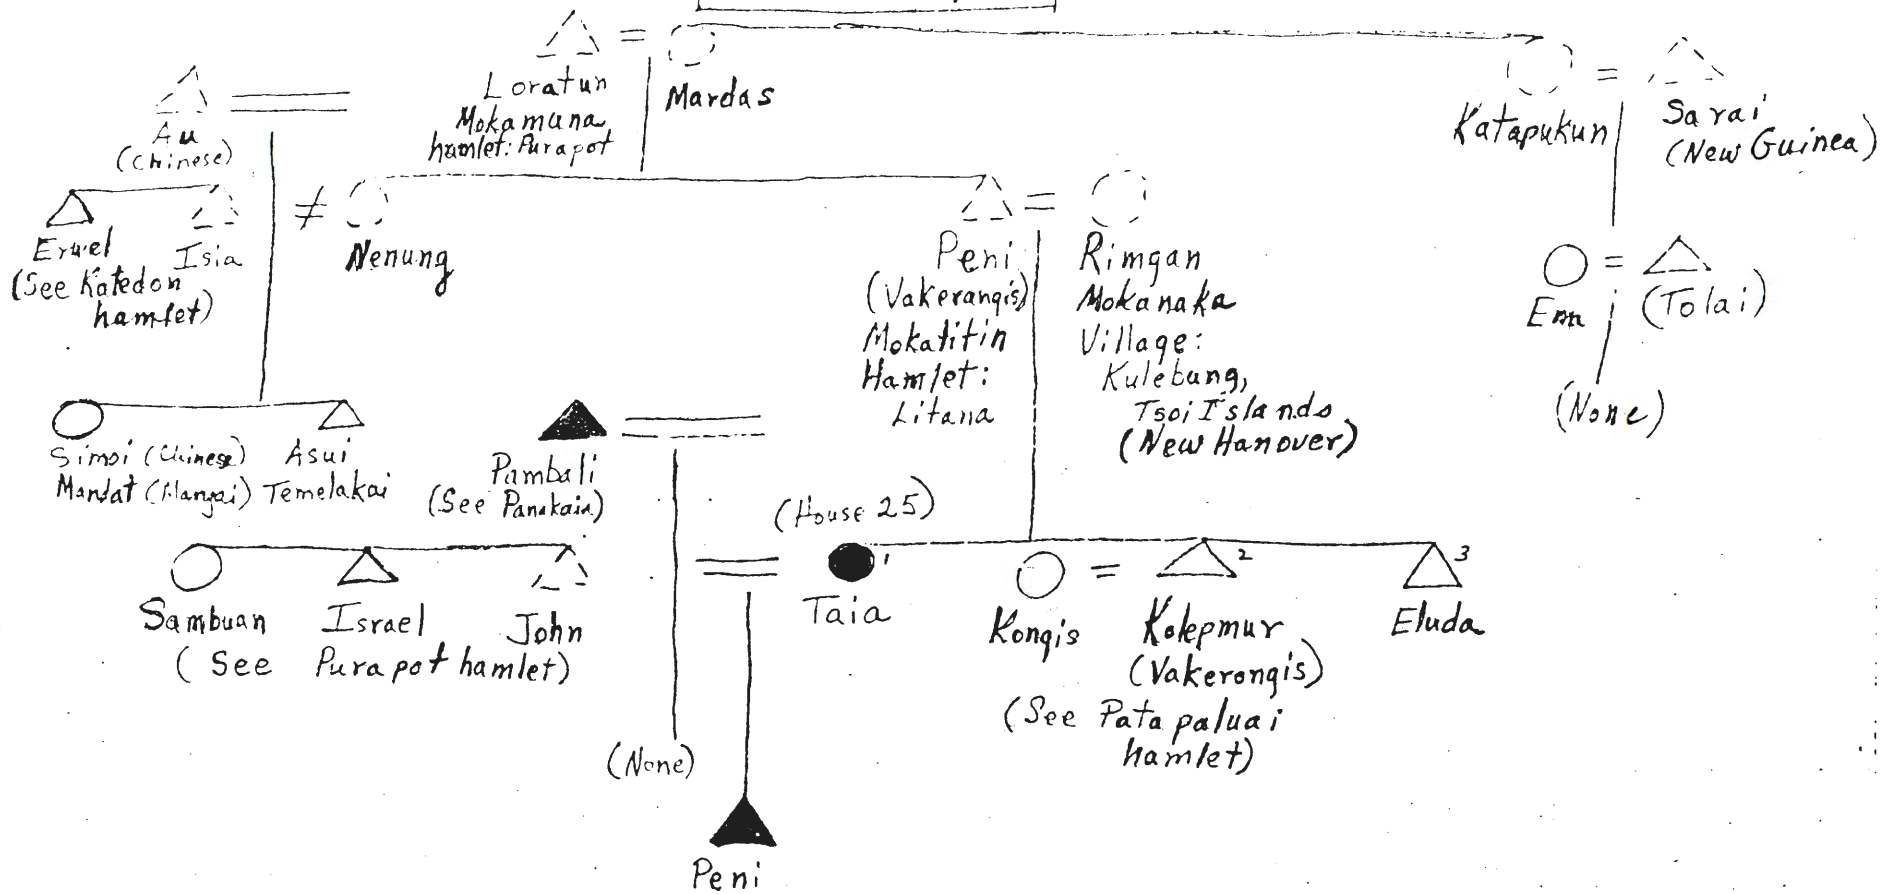 Loratun
Mokamuna
hamlet: Purapot
Mardas
Katapukun
Sarai
(New Guinea)
Au
(Chinese)
Eruel
(See Katedon
hamlet)
Isia
Nenung
Peni
(Vakerangis)
Mokatitin
Hamlet:
Litana
Rimgan
Mokanaka
Village:
Kulebung,
Tsoi Islands
(New Hanover)
(Tolai)
(None)
Simoi (Chinese)
Mandat
Asui
Temelakai
Pambali
(See
(House 25)
Sambuan
Israel
John
(See Purapot hamlet)
1
Taia
Kongis
2
Kolepmur
(Vakerongis)
(See Patapaluai
hamlet)
3
Eluda
(None)
Peni